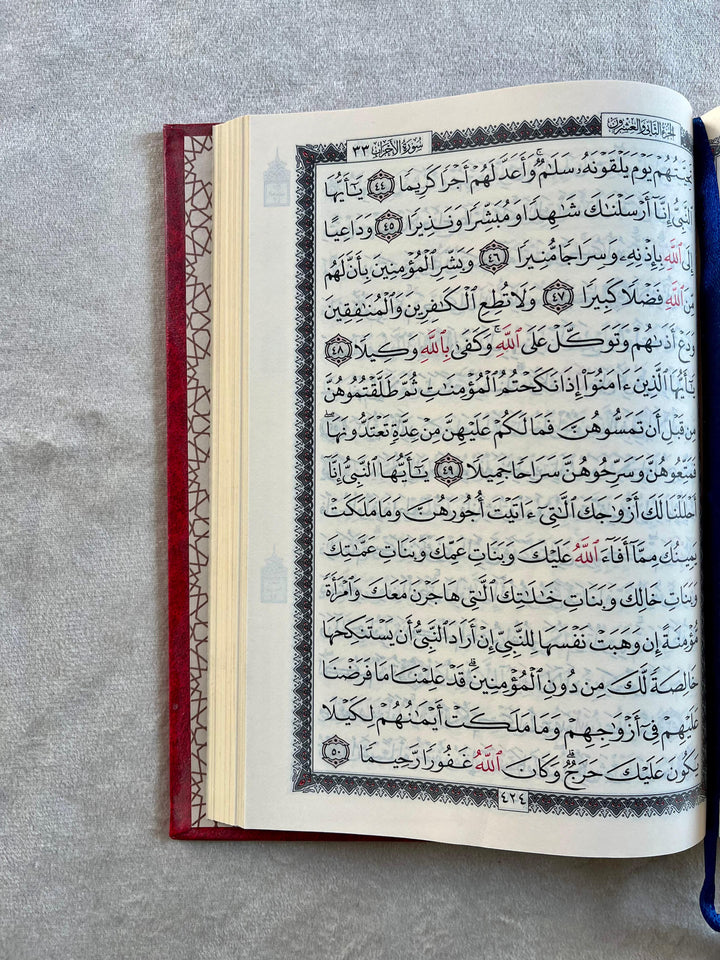 الجزء الثاني والعشرون
سورة الأحزاب ٣٣
تَحِيَّتُهُمْ يَوْمَ يَلْقَوْنَهُۥ سَلَٰمٌۚ وَأَعَدَّ لَهُمْ أَجْرًا كَرِيمًا ٤٤ يَٰٓأَيُّهَا
ٱلنَّبِيُّ إِنَّآ أَرْسَلْنَٰكَ شَٰهِدًا وَمُبَشِّرًا وَنَذِيرًا ٤٥ وَدَاعِيًا
إِلَى ٱللَّهِ بِإِذْنِهِۦ وَسِرَاجًا مُّنِيرًا ٤٦ وَبَشِّرِ ٱلْمُؤْمِنِينَ بِأَنَّ لَهُم
مِّنَ ٱللَّهِ فَضْلًا كَبِيرًا ٤٧ وَلَا تُطِعِ ٱلْكَٰفِرِينَ وَٱلْمُنَٰفِقِينَ
وَدَعْ أَذَىٰهُمْ وَتَوَكَّلْ عَلَى ٱللَّهِۚ وَكَفَىٰ بِٱللَّهِ وَكِيلًا ٤٨
يَٰٓأَيُّهَا ٱلَّذِينَ ءَامَنُوٓا۟ إِذَا نَكَحْتُمُ ٱلْمُؤْمِنَٰتِ ثُمَّ طَلَّقْتُمُوهُنَّ
مِن قَبْلِ أَن تَمَسُّوهُنَّ فَمَا لَكُمْ عَلَيْهِنَّ مِنْ عِدَّةٍ تَعْتَدُّونَهَاۖ
فَمَتِّعُوهُنَّ وَسَرِّحُوهُنَّ سَرَاحًا جَمِيلًا ٤٩ يَٰٓأَيُّهَا ٱلنَّبِيُّ إِنَّآ
أَحْلَلْنَا لَكَ أَزْوَٰجَكَ ٱلَّٰتِيٓ ءَاتَيْتَ أُجُورَهُنَّ وَمَا مَلَكَتْ
يَمِينُكَ مِمَّآ أَفَآءَ ٱللَّهُ عَلَيْكَ وَبَنَاتِ عَمِّكَ وَبَنَاتِ عَمَّٰتِكَ
وَبَنَاتِ خَالِكَ وَبَنَاتِ خَٰلَٰتِكَ ٱلَّٰتِي هَاجَرْنَ مَعَكَ وَٱمْرَأَةً
مُّؤْمِنَةً إِن وَهَبَتْ نَفْسَهَا لِلنَّبِيِّ إِنْ أَرَادَ ٱلنَّبِيُّ أَن يَسْتَنكِحَهَا
خَالِصَةً لَّكَ مِن دُونِ ٱلْمُؤْمِنِينَۗ قَدْ عَلِمْنَا مَا فَرَضْنَا
عَلَيْهِمْ فِيٓ أَزْوَٰجِهِمْ وَمَا مَلَكَتْ أَيْمَٰنُهُمْ لِكَيْلَا
يَكُونَ عَلَيْكَ حَرَجٌۗ وَكَانَ ٱللَّهُ غَفُورًا رَّحِيمًا ٥٠
٤٢٤